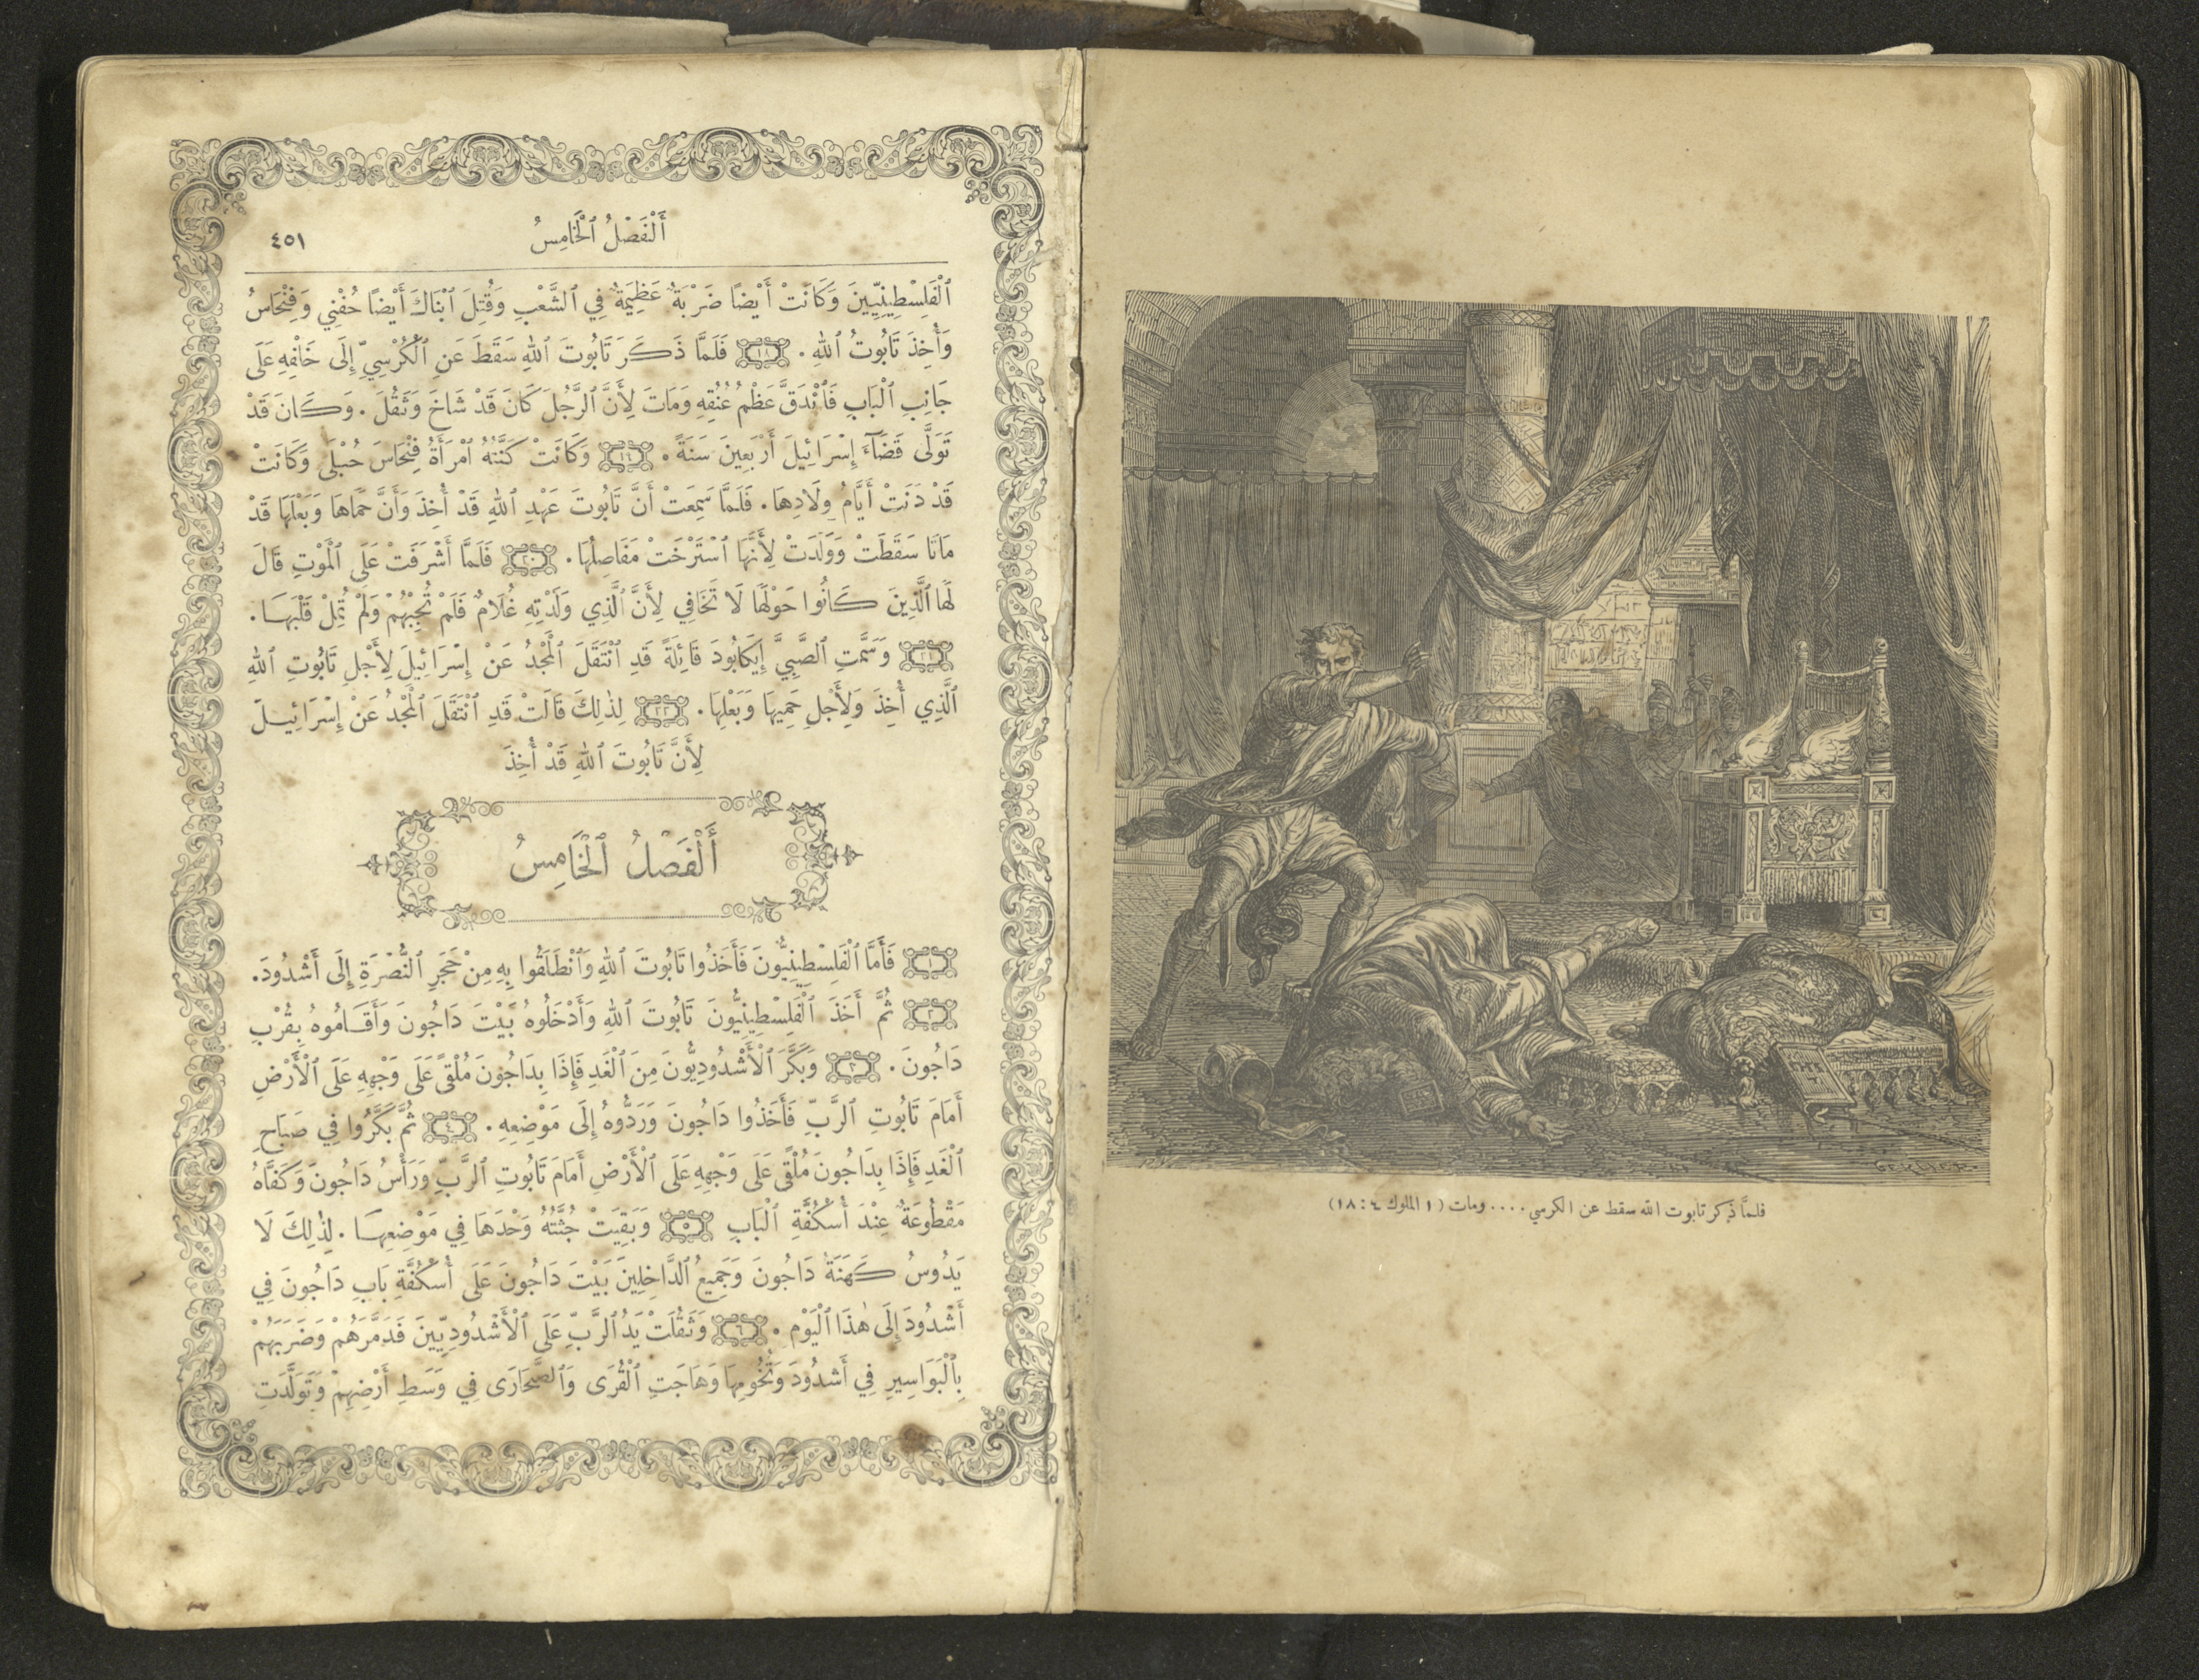 فلمَّا ذكر تابوت الله سقط عن الكرسي .... ومات (١ الملوك ٤ : ١٨)
أَلْفَصْلُ ٱلْخَامِسُ
٤٥١
ٱلْفَلِسْطِينِيِّينَ وَكَانَتْ أَيْضًا ضَرْبَةٌ عَظِيمَةٌ فِي ٱلشَّعْبِ وَقُتِلَ ٱبْنَاكَ أَيْضًا حُفْنِي وَفِنْحَاسُ
وَأُخِذَ تَابُوتُ ٱللهِ . ١٨ فَلَمَّا ذَكَرَ تَابُوتَ ٱللهِ سَقَطَ عَنِ ٱلْكُرْسِيِّ إِلَى خَلْفِهِ عَلَى
جَانِبِ ٱلْبَابِ فَٱنْدَقَّ عَظْمُ عُنُقِهِ وَمَاتَ لِأَنَّ ٱلرَّجُلَ كَانَ قَدْ شَاخَ وَثَقُلَ . وَكَانَ قَدْ
تَوَلَّى قَضَآءَ إِسْرَائِيلَ أَرْبَعِينَ سَنَةً . ١٩ وَكَانَتْ كَنَّتُهُ ٱمْرَأَةُ فِنْحَاسَ حُبْلَى وَكَانَتْ
قَدْ دَنَتْ أَيَّامُ وِلَادِهَا . فَلَمَّا سَمِعَتْ أَنَّ تَابُوتَ عَهْدِ ٱللهِ قَدْ أُخِذَ وَأَنَّ حَمَاهَا وَبَعْلَهَا قَدْ
مَاتَا سَقَطَتْ وَوَلَدَتْ لِأَنَّهَا ٱسْتَرْخَتْ مَفَاصِلُهَا . ٢٠ فَلَمَّا أَشْرَفَتْ عَلَى ٱلْمَوْتِ قَالَ
لَهَا ٱلَّذِينَ كَانُوا حَوْلَهَا لَا تَخَافِي لِأَنَّ ٱلَّذِي وَلَدْتِهِ غُلَامٌ فَلَمْ تُجِبْهُمْ وَلَمْ تُمِلْ قَلْبَهَا .
٢١ وَسَمَّتِ ٱلصَّبِيَّ إِيكَابُودَ قَائِلَةً قَدِ ٱنْتَقَلَ ٱلْمَجْدُ عَنْ إِسْرَائِيلَ لِأَجْلِ تَابُوتِ ٱللهِ
ٱلَّذِي أُخِذَ وَلِأَجْلِ حَمِيهَا وَبَعْلِهَا . ٢٢ لِذٰلِكَ قَالَتْ قَدِ ٱنْتَقَلَ ٱلْمَجْدُ عَنْ إِسْرَائِيلَ
لِأَنَّ تَابُوتَ ٱللهِ قَدْ أُخِذَ
أَلْفَصْلُ ٱلْخَامِسُ
١ فَأَمَّا ٱلْفَلِسْطِينِيُّونَ فَأَخَذُوا تَابُوتَ ٱللهِ وَٱنْطَلَقُوا بِهِ مِنْ حَجَرِ ٱلنُّصْرَةِ إِلَى أَشْدُودَ .
٢ ثُمَّ أَخَذَ ٱلْفَلِسْطِينِيُّونَ تَابُوتَ ٱللهِ وَأَدْخَلُوهُ بَيْتَ دَاجُونَ وَأَقَامُوهُ بِقُرْبِ
دَاجُونَ . ٣ وَبَكَّرَ ٱلْأَشْدُودِيُّونَ مِنَ ٱلْغَدِ فَإِذَا بِدَاجُونَ مُلْقًى عَلَى وَجْهِهِ عَلَى ٱلْأَرْضِ
أَمَامَ تَابُوتِ ٱلرَّبِّ فَأَخَذُوا دَاجُونَ وَرَدُّوهُ إِلَى مَوْضِعِهِ . ٤ ثُمَّ بَكَّرُوا فِي صَبَاحِ
ٱلْغَدِ فَإِذَا بِدَاجُونَ مُلْقًى عَلَى وَجْهِهِ عَلَى ٱلْأَرْضِ أَمَامَ تَابُوتِ ٱلرَّبِّ وَرَأْسُ دَاجُونَ وَكَفَّاهُ
مَقْطُوعَةٌ عِنْدَ أُسْكُفَّةِ ٱلْبَابِ ٥ وَبَقِيَتْ جُثَّتُهُ وَحْدَهَا فِي مَوْضِعِهَا . لِذٰلِكَ لَا
يَدُوسُ كَهَنَةُ دَاجُونَ وَجَمِيعُ ٱلدَّاخِلِينَ بَيْتَ دَاجُونَ عَلَى أُسْكُفَّةِ بَابِ دَاجُونَ فِي
أَشْدُودَ إِلَى هٰذَا ٱلْيَوْمِ . ٦ وَثَقُلَتْ يَدُ ٱلرَّبِّ عَلَى ٱلْأَشْدُودِيِّينَ فَدَمَّرَهُمْ وَضَرَبَهُمْ
بِٱلْبَوَاسِيرِ فِي أَشْدُودَ وَتُخُومِهَا وَهَاجَتِ ٱلْقُرَى وَٱلصَّحَارَى فِي وَسَطِ أَرْضِهِمْ وَتَوَلَّدَتِ